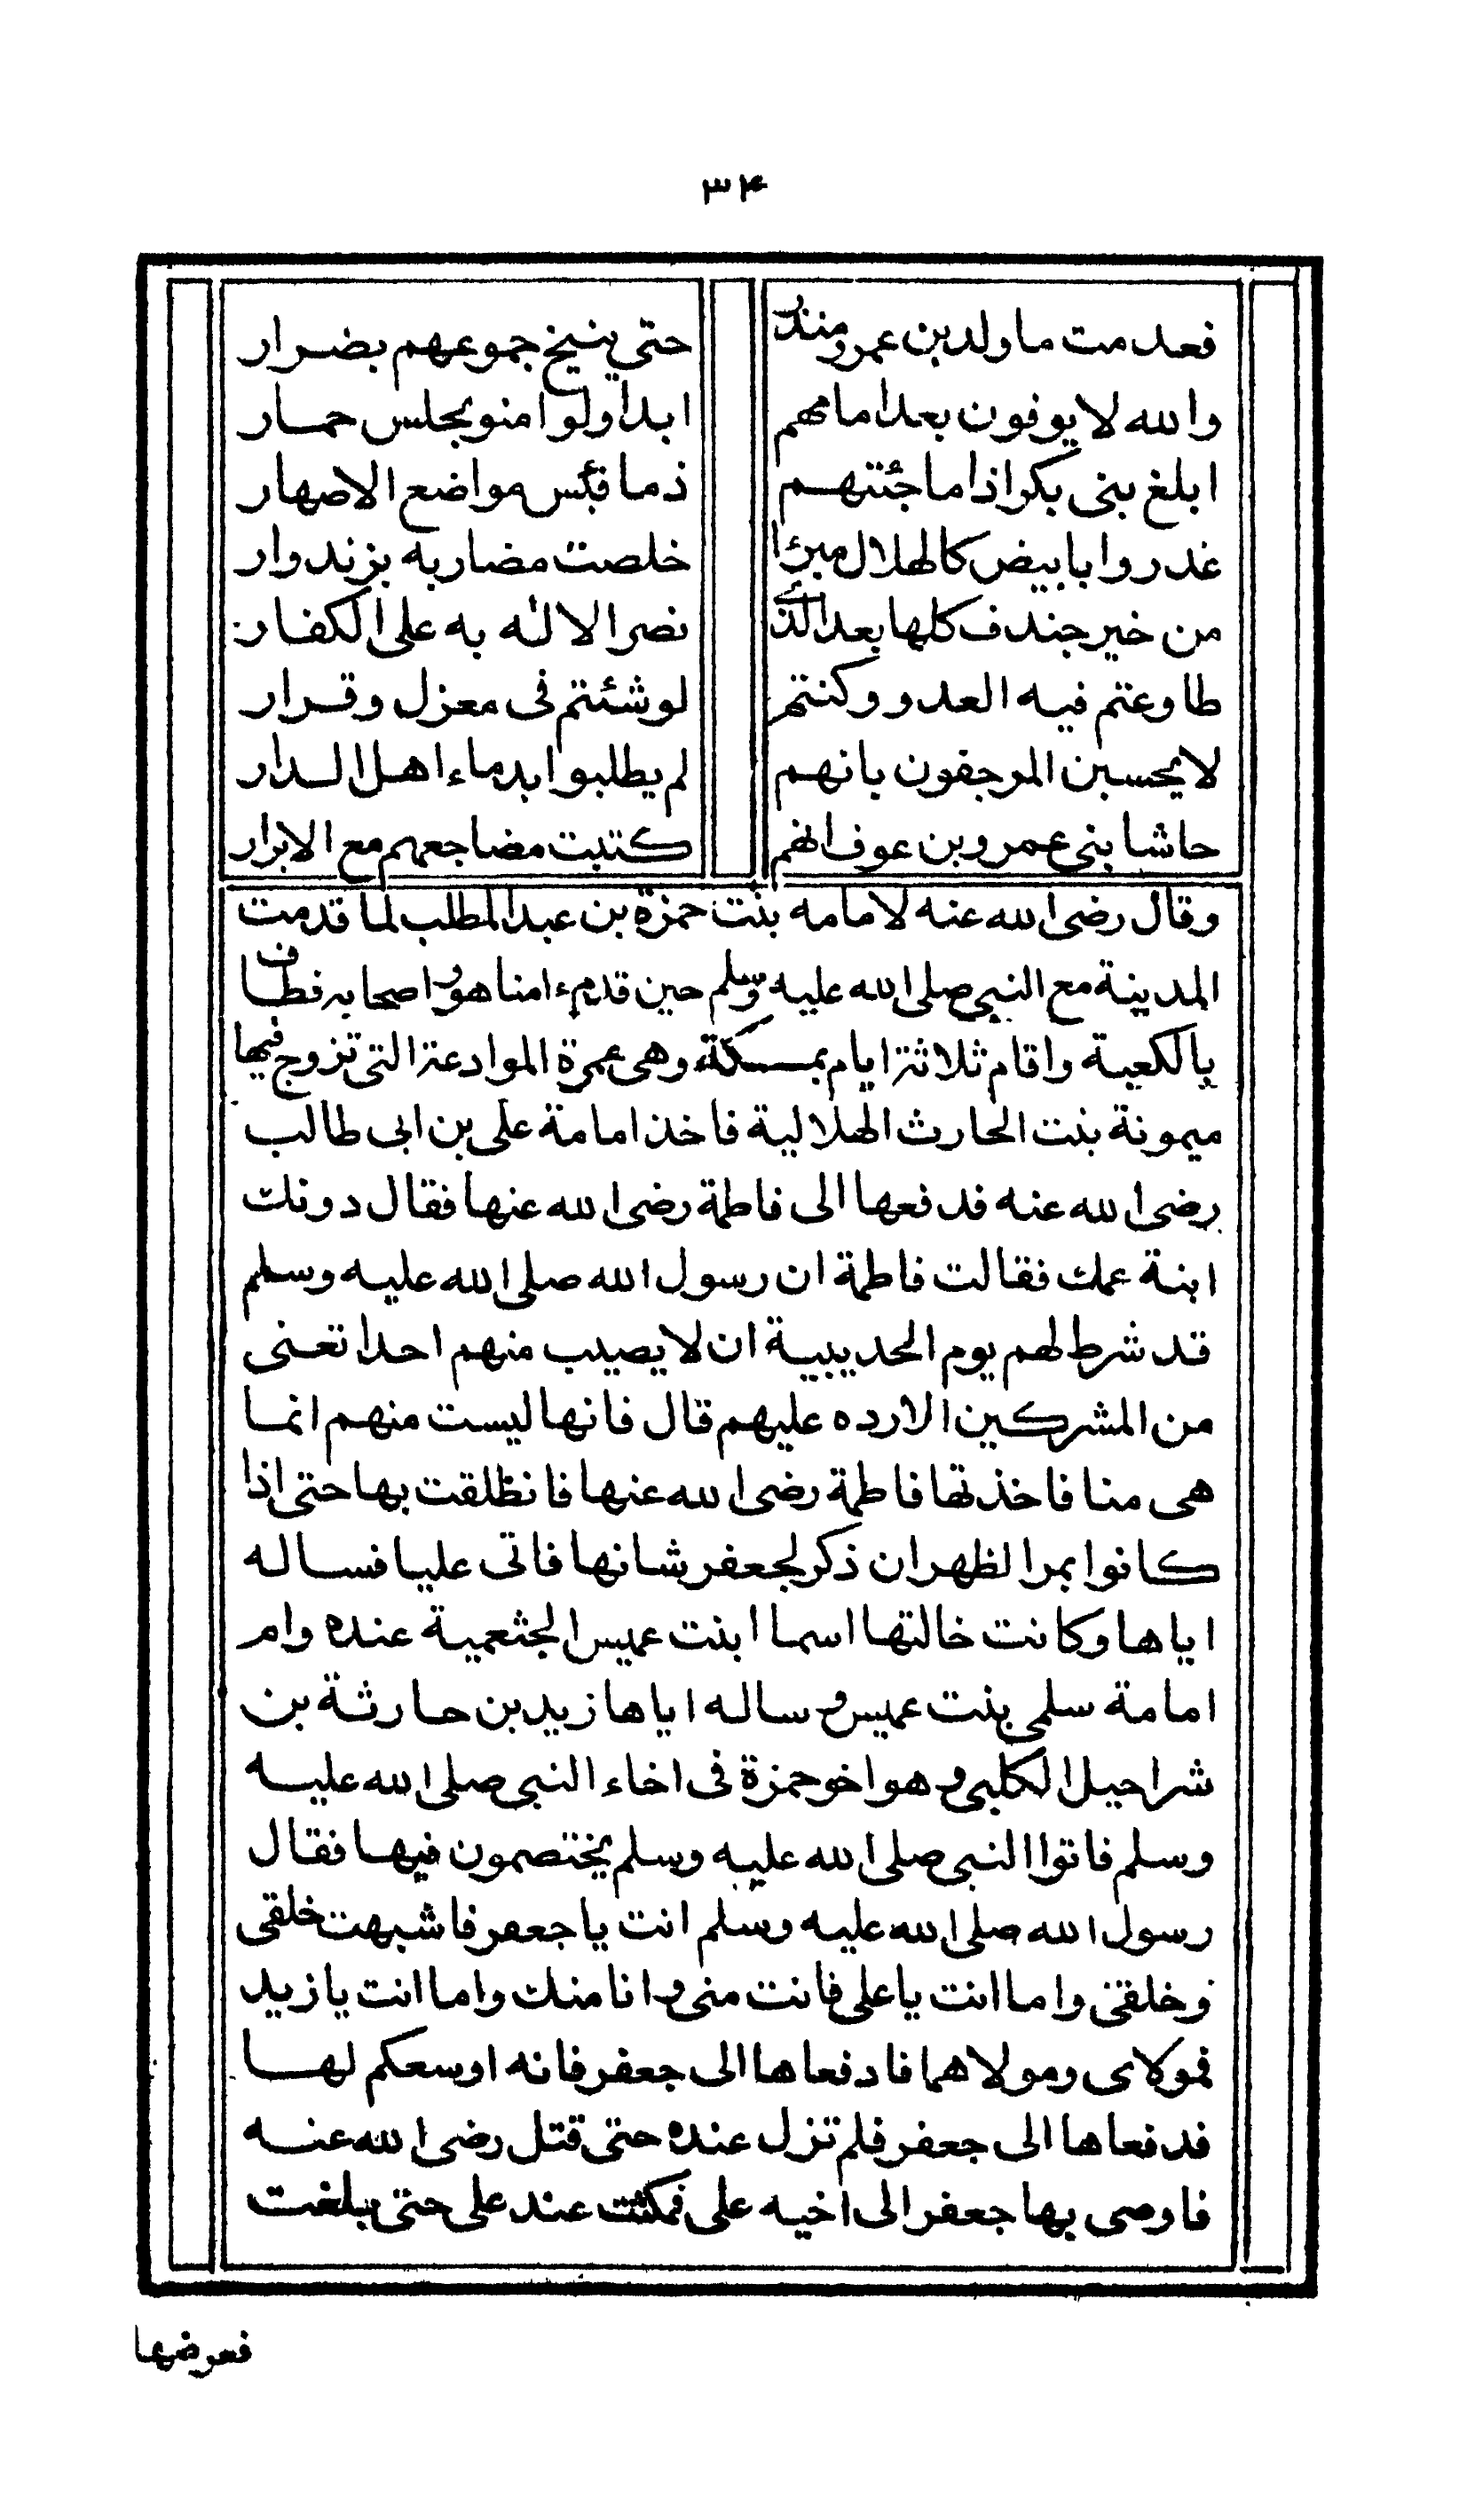 ۳۴
فعدمت ما ولد بن عمرو منذر حتى ينيخ جموعهم بضرار
والله لا يوفون بعد امامهم ابدا ولو امنو بمجلس حمار
ابلغ بنى بكر اذا ما جئتهم ذما فبئس مواضع الاصهار
غدروا بابيض كالهلال مبرئا خلصت مضاربه بزند وار
من خير جندف كلها بعد الذى نصر الاله به على الكفار
طاوعتم فيه العدو وكنتم لو شئتم فى معزل وقرار
لا يحسبن المرجفون بانهم لم يطلبوا بدماء اهل الدار
حاشا بنى عمرو بن عوف انهم كتبت مضاجعهم مع الابرار
وقال رضى الله عنه لامامه بنت حمزة بن عبدالمطلب لما قدمت
المدينة مع النبى صلى الله عليه وسلم حين قدم امنا هو و اصحابه فطاف
بالكعبة واقام ثلاثة ايام بمكة وهى عمرة الموادعة التى تزوج فيها
ميمونة بنت الحارث الهلالية فاخذ امامة على بن ابى طالب
رضى الله عنه فدفعها الى فاطمة رضى الله عنها فقال دونك
ابنة عمك فقالت فاطمة ان رسول الله صلى الله عليه وسلم
قد شرط لهم يوم الحديبية ان لا يصيب منهم احدا تعنى
من المشركين الا رده عليهم قال فانها ليست منهم انما
هى منا فاخذتها فاطمة رضى الله عنها فانظلقت بها حتى اذا
كانوا بمر الظهران ذكر لجعفر شانها فاتى عليا فساله
اياها وكانت خالتها اسما ابنت عميس الجثعمية عنده وام
امامة سلمى بنت عميس و ساله اياها زيد بن حارثة بن
شراحيل الكلبى و هو اخو حمزة فى اخاء النبى صلى الله عليه
وسلم فاتوا النبى صلى الله عليه وسلم يختصمون فيها فقال
رسول الله صلى الله عليه وسلم انت يا جعفر فاشبهت خلقى
وخلقى واما انت يا على فانت منى و انا منك واما انت يا زيد
فمولاى ومولاهما فادفعاها الى جعفر فانه اوسعكم لها
فدفعاها الى جعفر فلم تزل عنده حتى قتل رضى الله عنه
فاوصى بها جعفر الى اخيه على فمكثت عند على حتى بلغت
فعرضها